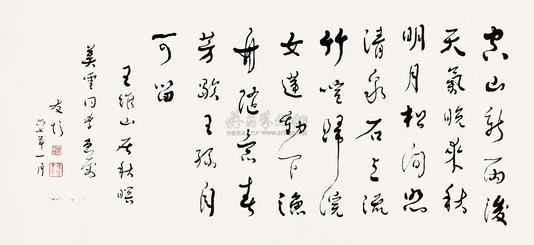 空山新雨後
天氣晚來秋
明月松間照
清泉石上流
竹喧歸浣
女蓮動下漁
舟隨意春
芳歇王孫自
可留
王維山居秋暝
雲同學
年一月